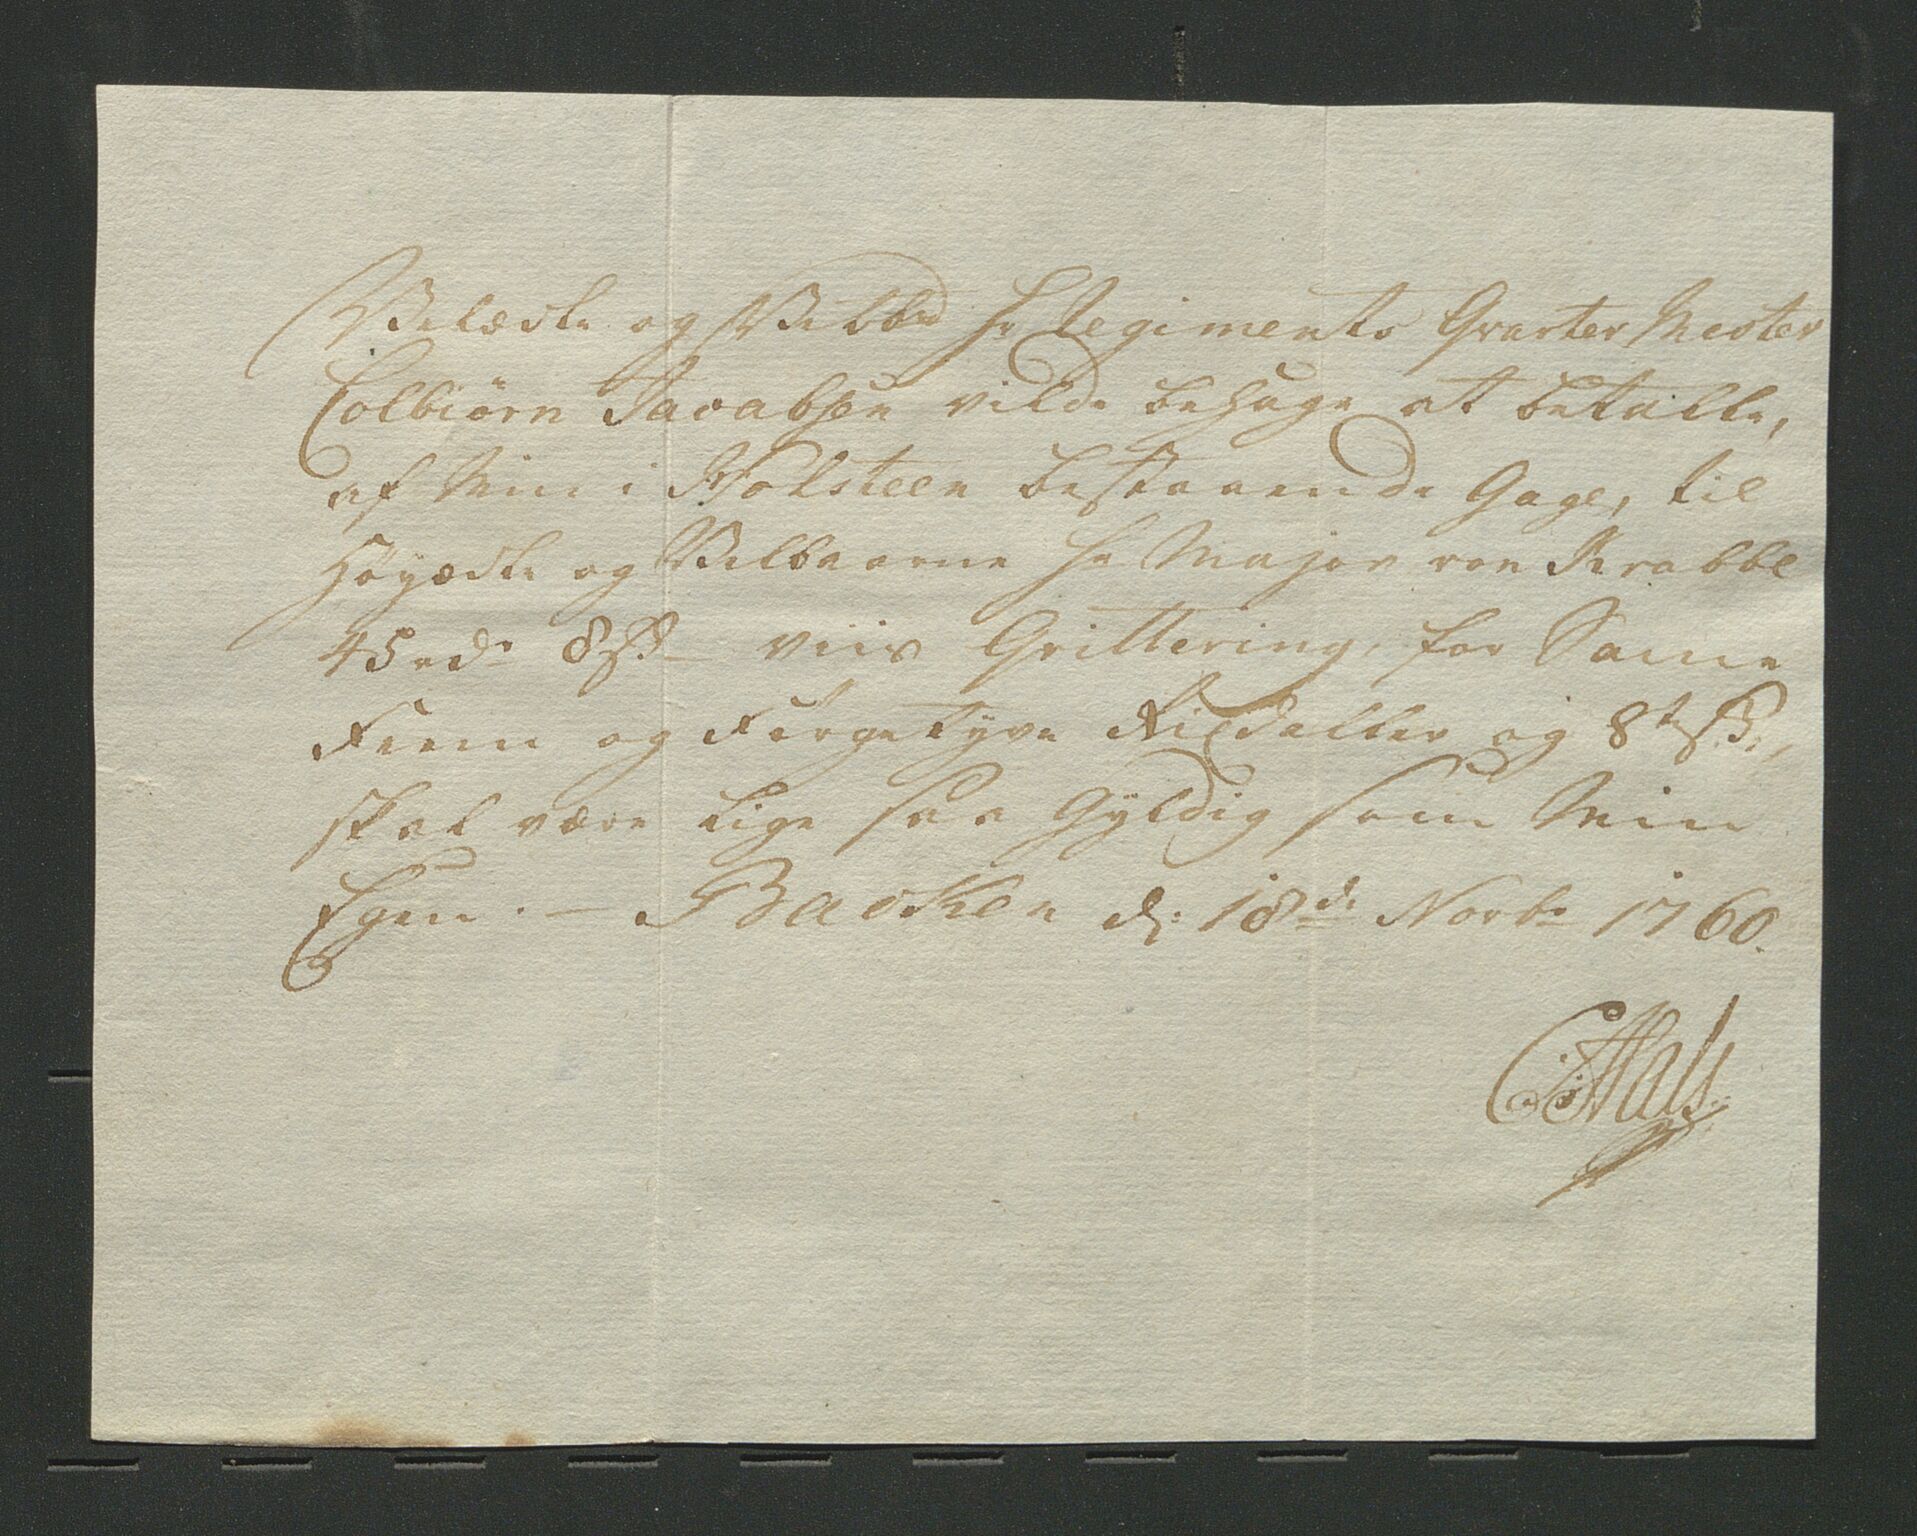 Velædle og Velbrd Hr Regiments Qvarter Mester
Colbiørn Jacobsen vilde behage at betalle,
af Min i Holsteen bestaaende Gage, til
Høyædle og Velbaarne Hr Major von Krabbe
45 rdr 8 ß – viis Qvittering, for Same
Feem og Førgetyve Rixdaller og 8te ß,
skal være lige saa Gyldig som Min
Egen. – Backen d: 18de Novbr 1760.